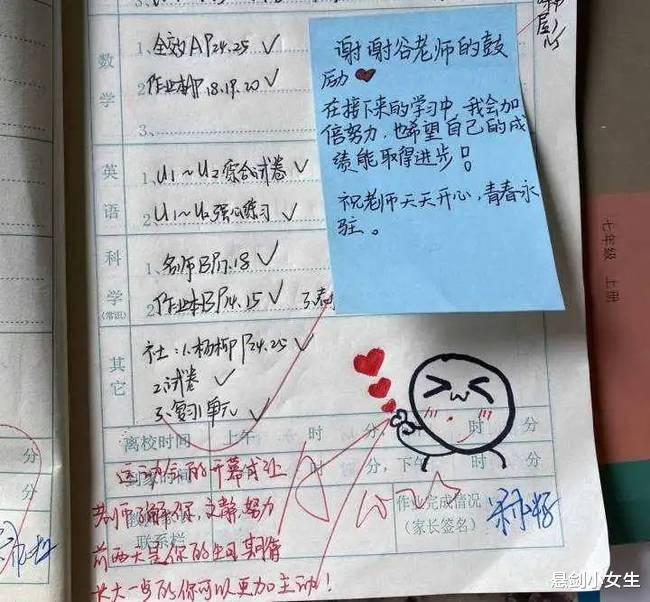 数学
1、全效A P24.25 ✓
2、作业本P18.19.20 ✓
3、
英语
1、U1～U2综合试卷 ✓
2、U1～U2强化练习 ✓
科学(常识)
1、名师B P17.18 ✓
2、作业本B P14.15 ✓
其它
社：1、杨柳P24.25 ✓
2、试卷 ✓
3、复习1单元 ✓
离校时间 上午 时 分，下午 时 分
时 分，下午 时 分
联系栏
作业完成情况
(家长签名)
谢谢谷老师的鼓
励
在接下来的学习中，我会加
倍努力，也希望自己的成
绩能取得进步！
祝老师天天开心，青春永
驻。
运动会的开幕式让
老师了解你，文静，努力
前两天是你的生日，期待
长大一岁的你可以更加主动！
七年级 上册
分
分
悬剑小女生